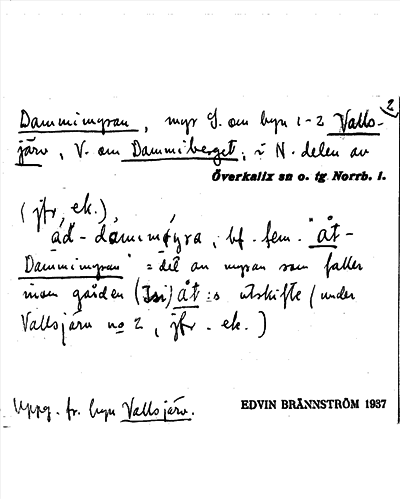 2
Dammimyran, myr S. om byn 1-2 Valls-
järv, V. om Dammiberget; i N. delen av
Överkalix sn o. tg Norrb. l.
(jfr, ek.),
åd-damimøyra, bf. fem. "åt-
Dammimyran" = del av myran som faller
inom gården (Isi) åt:s utskifte (under
Vallsjärv no 2, jfr. ek.)
Uppg. fr. byn Vallsjärv.
EDVIN BRÄNNSTRÖM 1937